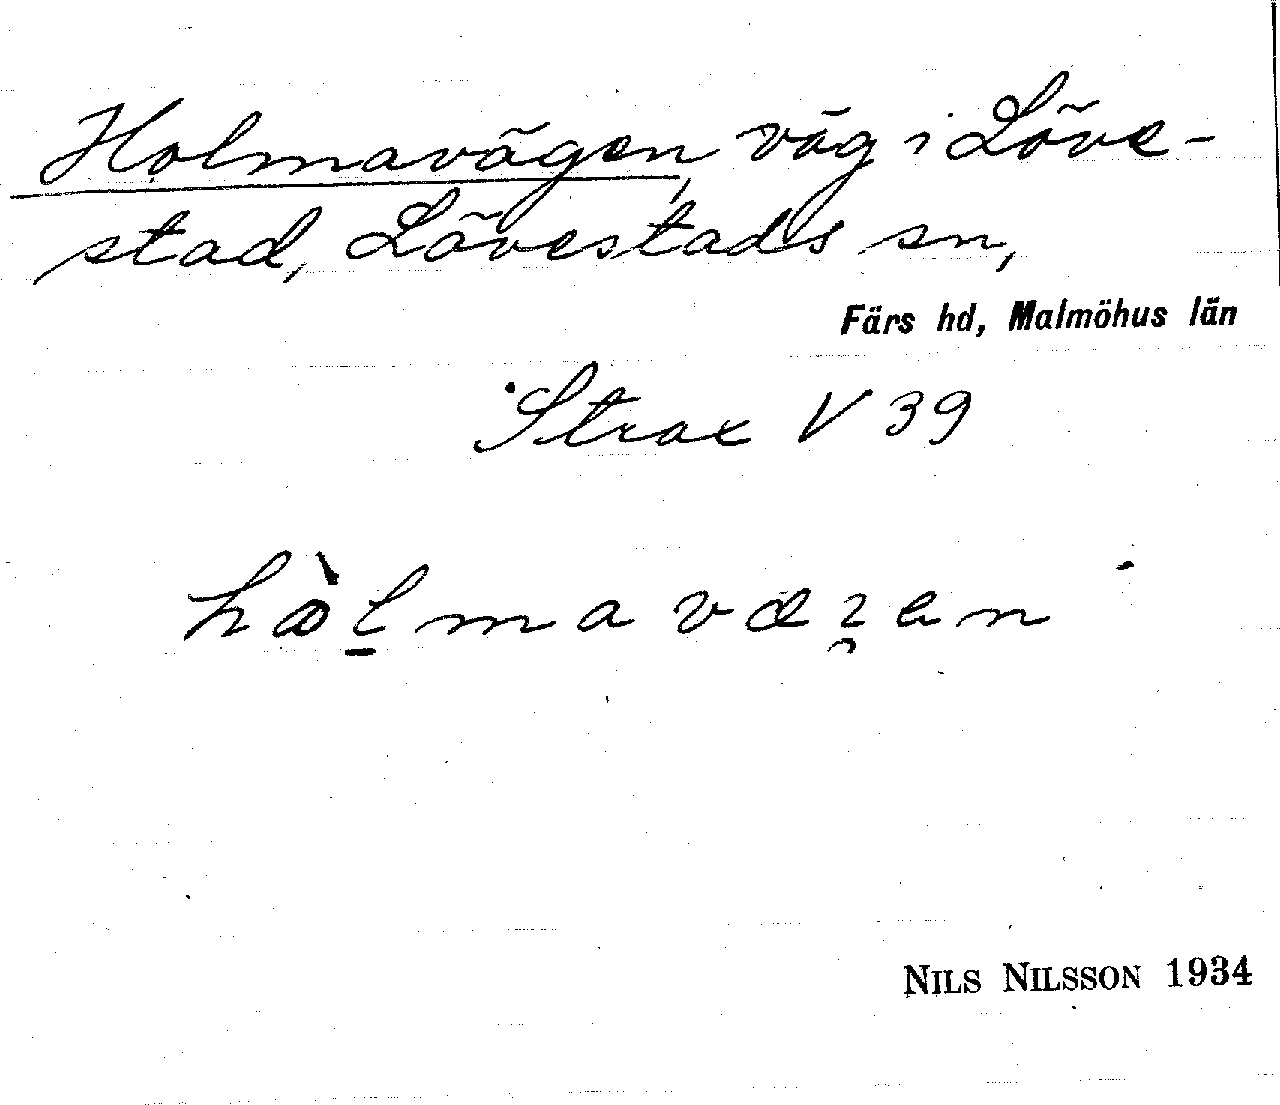 Holmavägen, väg i Löve-
stad, Lövestads sn,
Färs hd, Malmöhus län
Strax V 39
NILS NILSSON 1934